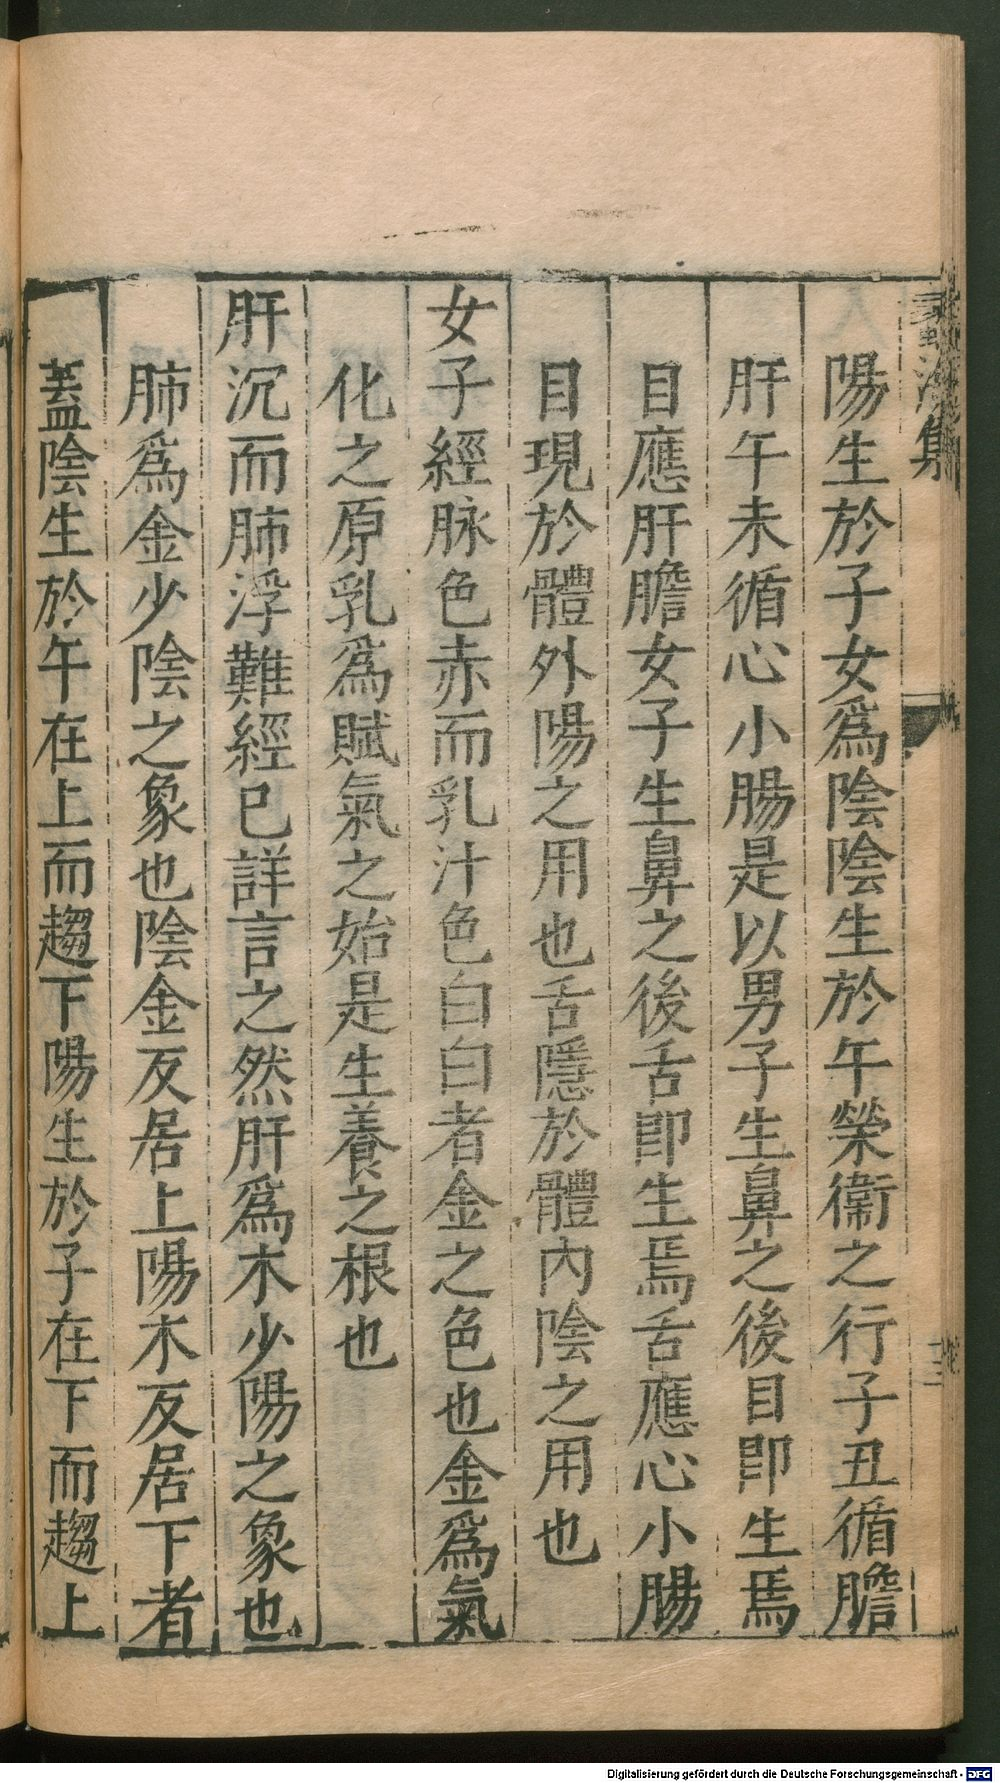 陽生於子女爲陰陰生於午榮衞之行子丑循膽
肝午未循心小腸是以男子生鼻之後目卽生焉
目應肝膽女子生鼻之後舌卽生焉舌應心小腸
目現於體外陽之用也舌隱於體內陰之用也
女子經脉色赤而乳汁色白白者金之色也金爲氣
化之原乳爲賦氣之始是生養之根也
肝沉而肺浮難經已詳言之然肝爲木少陽之象也
肺爲金少陰之象也陰金反居上陽木反居下者
蓋陰生於午在上而趨下陽生於子在下而趨上
Digitalisierung gefördert durch die Deutsche Forschungsgemeinschaft - DFG